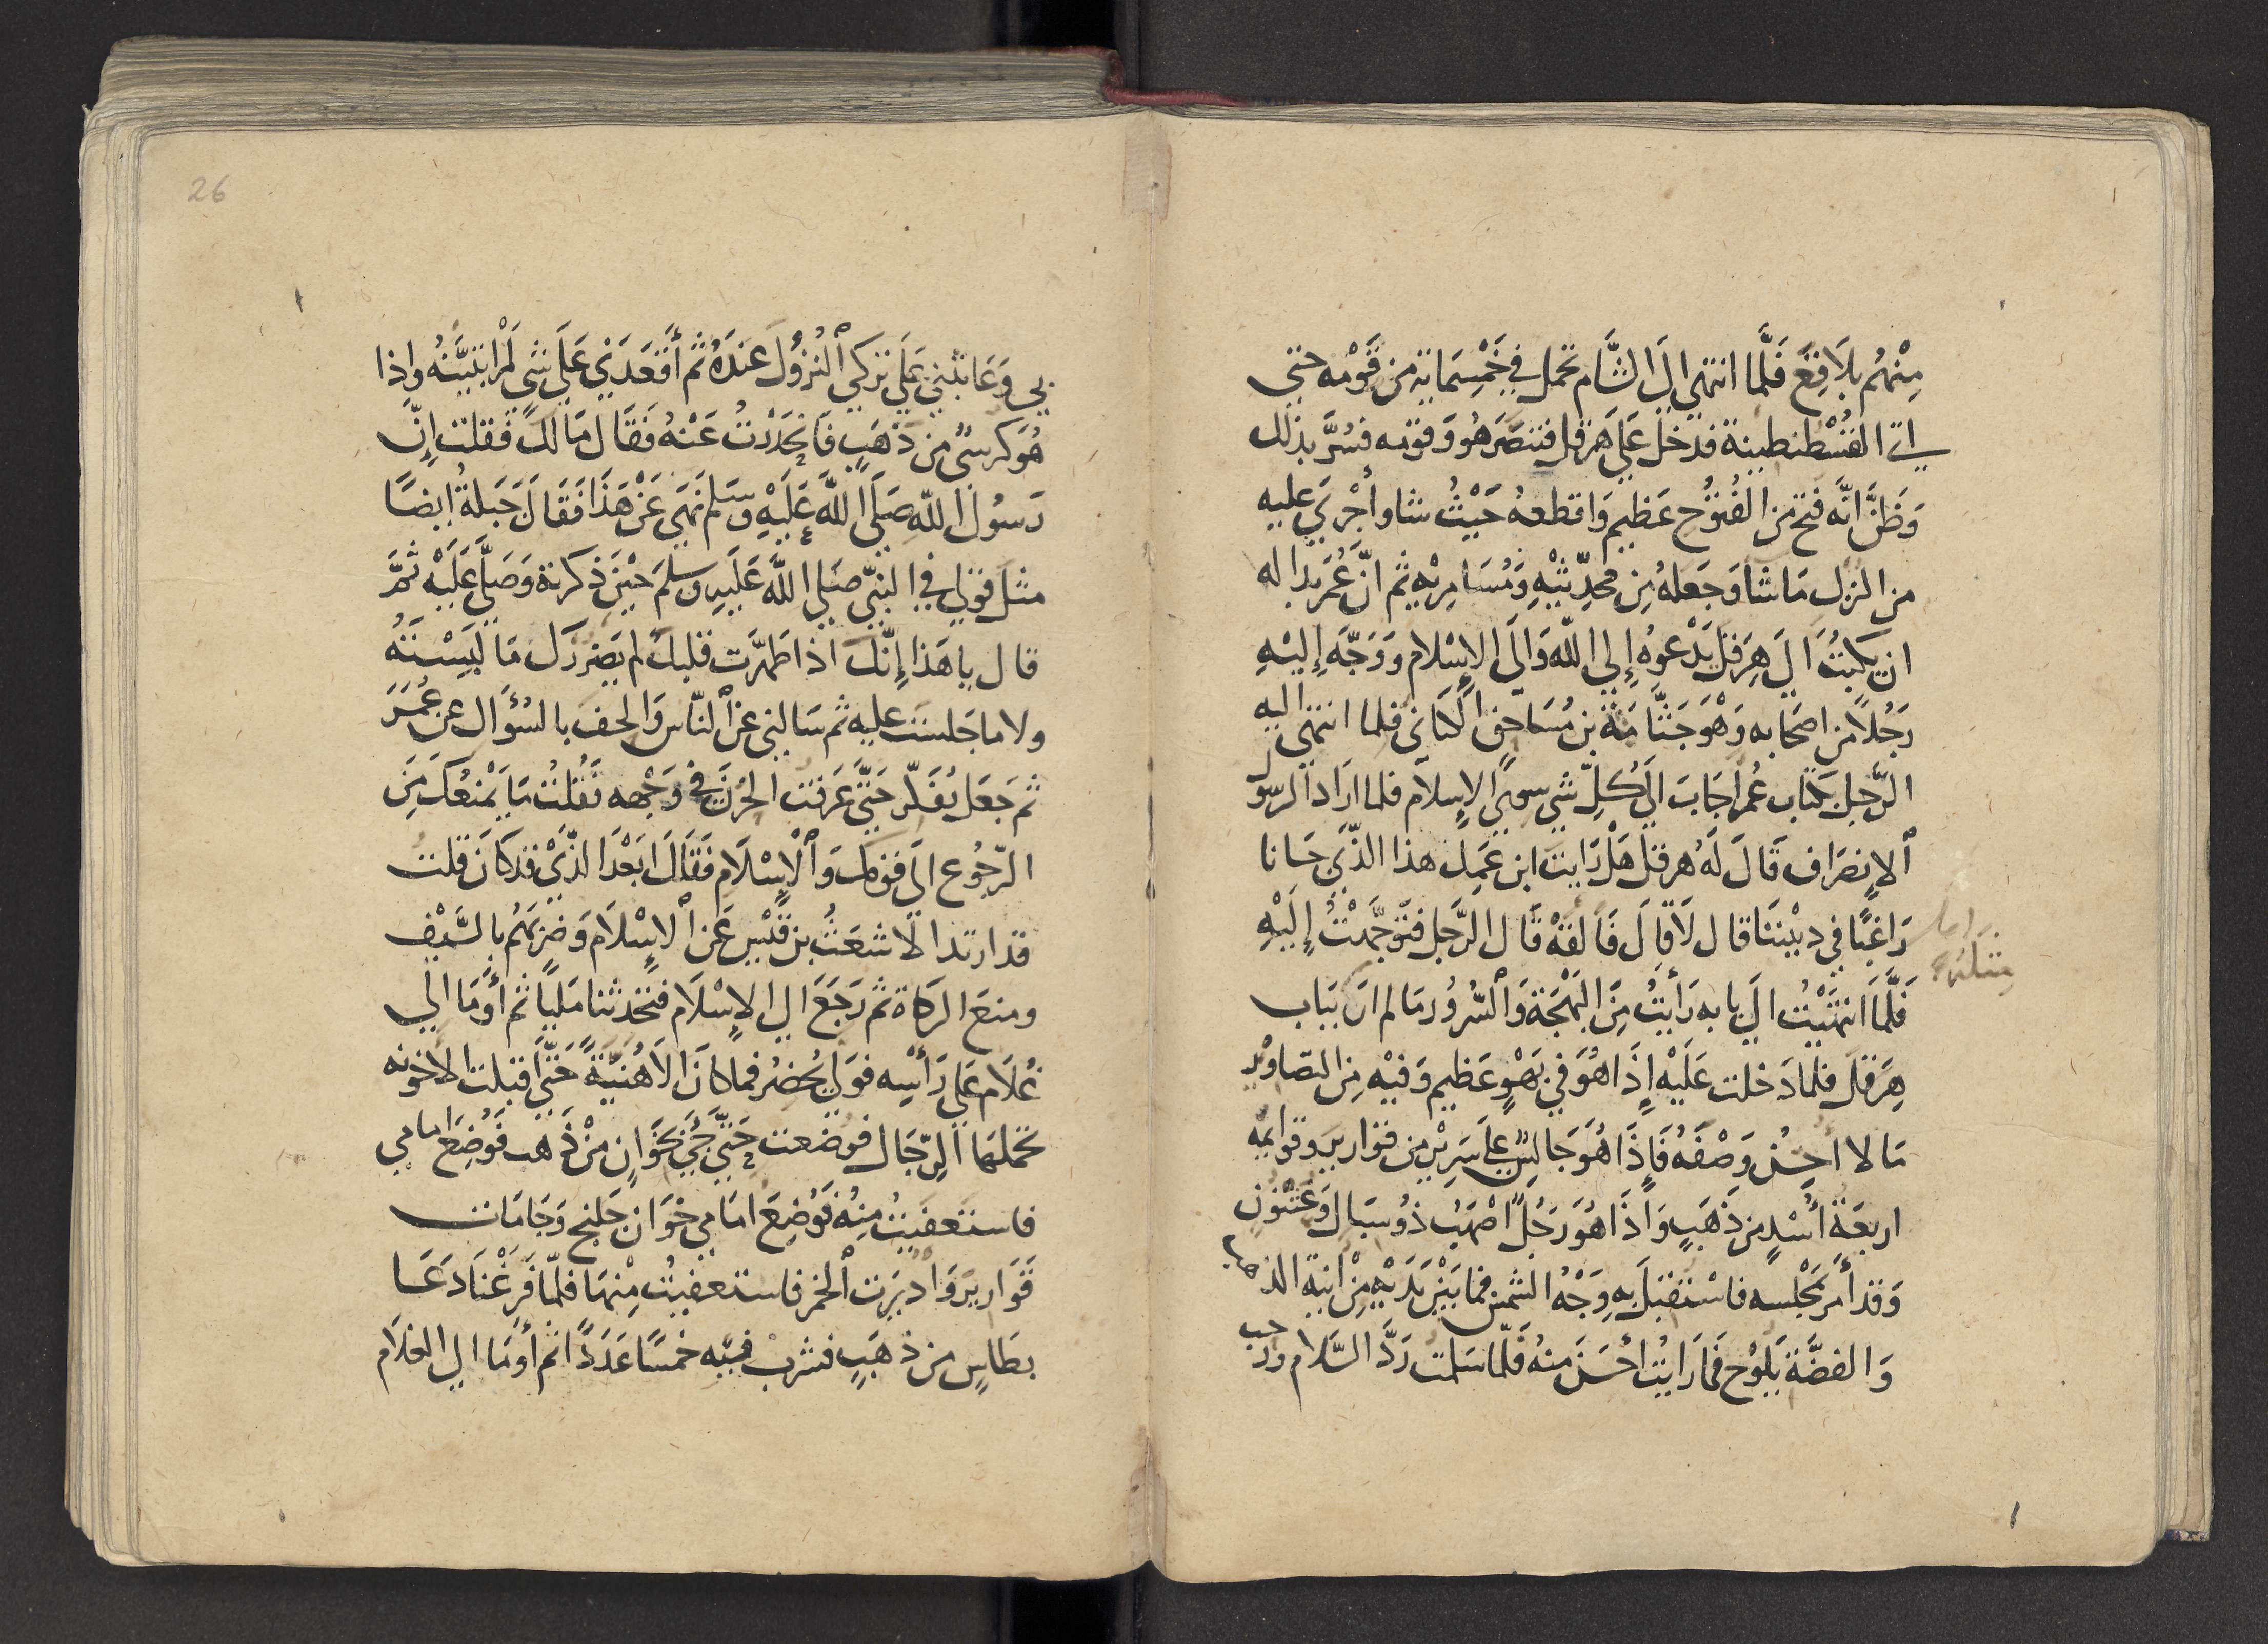 مِنْهُم بَلَاقِعَ فَلَمَّا انتهى الى الشَّام تحمل في خَمْسِمَاية من قَوْمه حتى
اتى القُسْطنطينة فدخل عَلَى هرقل فتنصَر هُو وَقومه فسُرَّ بذلك
وَظَنَّ انَّه فتح من الفُتوُح عَظيم وَاقطعهُ حَيْثُ شا وأجْرَي عليه
من النزل مَا شا وَجَعلهُ مِن محدِّثيْهِ وَمُسَامِرِيْهِ ثم انّ عُمَر بدا له
ان يكتُبَ الَى هِرَقل يَدْعوهُ إلى اللّه وَالَى الإسْلام وَوَجَّهَ إليْهِ
رَجُلاً من اصحَابه وَهْوَ جَثَّامَة بن مُسَاحِق الكنَانى فلما انتهى اليه
الرَّجل بكتاب عُمَر اجَابَ الَى كُلّ شي سوى الإسلام فلما ارَاد الرسول
ٱلإنصَرَاف قَالَ لَهُ هرقل هَل رَايت ابن عَمِك هذا الذّي جَانا
رَاغبًا في ديْننَا قال لَا قَالَ فَالقهْ قَال الرَّجل فتَوجَّهْتُ إلَيْهِ
فَلَّمَا انتَهَيْتُ الَى بابه رَأيْتُ مِنَ البَهْجَة وَٱلسُّرُور مَا لم ارَ بَبَاب
هِرَقل فلما دَخلت عَلَيْه إذَا هُوَ في بَهْوٍ عَظيم وَفيْهِ مِن التصَاوْير
مَا لا احسُن وَصْفَهُ فَإذَا هُوَ جَالسٌ عَلَى سَرِيْر من قوارير وقوايمُه
اربعَة أُسْدٍ من ذَهَبٍ وَاذَا هُوَ رَجُلٌ اصْهَبُ ذُو سبَال وَعُثْنوُن
وَقد أمَرَ بمَجْلسه فاسْتقبَلَ بِهِ وَجْهُ الشمس فما بَيْن يَدَيْهِ مِنْ انيَة الذهب
وَالفضَّة يَلوْح فَمَا رَايتُ احْسَنَ منهُ فَلمّا سَلمت رَدَّ السَّلام ورحب
26
بي وَعَاتبني عَلَى تركي ٱلنُزُوْلَ عندَهُ ثم أقعَدَني عَلَى شي لَمْ اتبيَّنهُ وإذا
هُوَ كرسيٌ من ذَهَبٍ فَانحَدَرْتُ عَنْهُ فَقَال مَا لكَ فقلت إنّ
رَسُولَ اللّه صَلَى اللَّه عَلَيْهِ وَسَلم نَهَى عَنْ هَذا فَقَالَ جَبَلةُ ايضًا
مثل قولي في النبيّ صَلى اللّه عَلَيهِ وسلم حيْنَ ذكرتهُ وَصَلَّى عَلَيْه ثمَّ
قال يا هَذا إِنَّكَ اذا طَهَّرَت قلبكَ لم يَضرركَ مَا لبَسْتَهُ
ولا ما جَلست عليه ثم سَالني عن ٱلنّاس وَالحف بالسُؤَال عن عُمَرَ
ثم جَعَل يُفكّر حَتىَّ عَرَفت الحُزنَ في وَجْهه فَقُلتُ مَا يَمْنعُكَ مِنَ
الرّجُوع الى قومكَ وَٱلإسْلَام فَقَالَ ابَعْدَ الذَّيْ قدكَانَ قلت
قد ارتد الاشعَثُ بن قَيْس عَن ٱلإسْلَام وَضَرَبَهُم بالسَّيْف
ومنعَ الزكاة ثم رَجَعَ الى الإسْلَام فتحدثنا مَلِيًا ثم أوْمَا الَى
غُلَام عَلَى رَأسْه فوَلى يُحْضرُ فما كَان الا هُنَيَّةً حَتَّى اقبلت الاخونه
تحملهَا ٱلرّجَال فوضعت حَتَّى جُئَ بخوَانٍ مِنْ ذَهب فَوُضِعَ امامي
فاستعفيتُ منِهُ فَوُضِعَ امَامي خوَان خلنج وَجَامَات
قَوَارير وَاديْرَت ٱلخمر فاستعفيتُ مِنْهَا فلمّا فَرَغْنَا دَعَا
بطَاسٍ من ذهَبٍ فشرب فيْه خمسًا عَدَدًا ثم أوْمَا الى الغلام